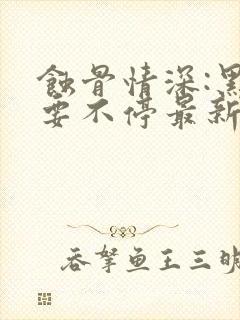 蚀骨情深:黑
要不停最新
吞拏鱼王三明